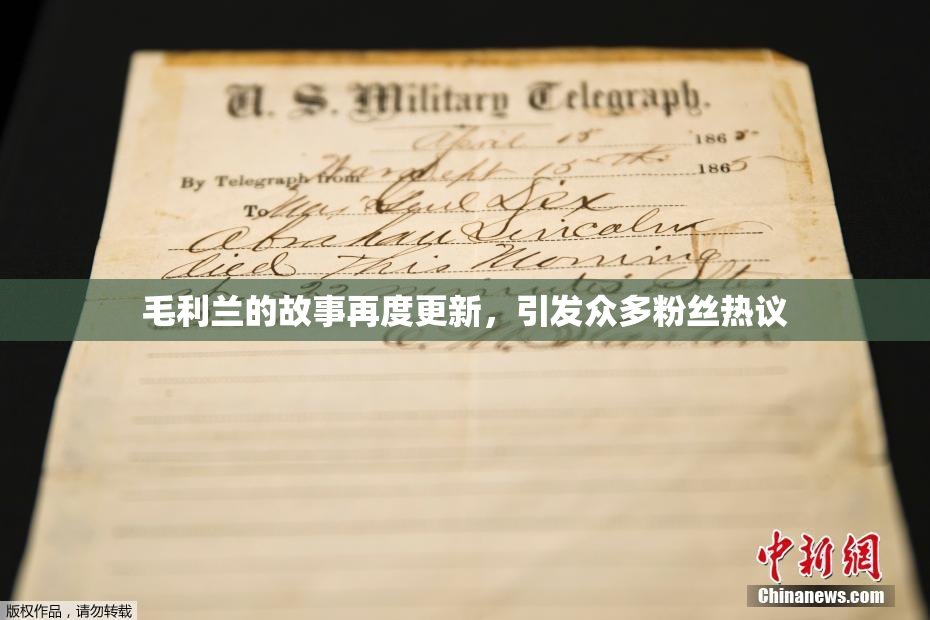 U. S. Military Telegraph.
April 15 1865
By Telegraph from War Dept 15th 1865
To Maj Genl Dix
Abraham Lincoln
died This Morning
at 22 minutes after
毛利兰的故事再度更新，引发众多粉丝热议
E. M. Stanton
中新網
Chinanews.com
版权作品，请勿转载